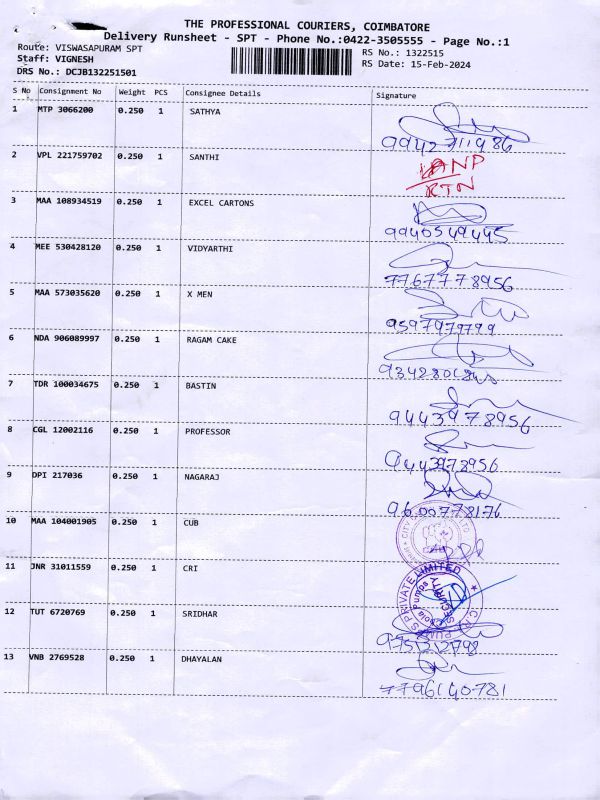 THE PROFESSIONAL COURIERS, COIMBATORE
Delivery Runsheet - SPT - Phone No.:0422-3505555 - Page No.:1
Route: VISWASAPURAM SPT
Staff: VIGNESH
DRS No.: DCJB132251501
RS No.: 1322515
RS Date: 15-Feb-2024
S No Consignment No Weight PCS Consignee Details Signature
1 MTP 3066200 0.250 1 SATHYA
9942711486
2 VPL 221759702 0.250 1 SANTHI
ANP
RTN
3 MAA 108934519 0.250 1 EXCEL CARTONS
9940549445
4 MEE 530428120 0.250 1 VIDYARTHI
7767778956
5 MAA 573035620 0.250 1 X MEN
9597979799
6 NDA 906089997 0.250 1 RAGAM CAKE
7 TDR 100034675 0.250 1 BASTIN
9443978956
8 CGL 12002116 0.250 1 PROFESSOR
9443978956
9 DPI 217036 0.250 1 NAGARAJ
9600778176
10 MAA 104001905 0.250 1 CUB
11 JNR 31011559 0.250 1 CRI
PRIVATE LIMITED
SECURITY
12 TUT 6720769 0.250 1 SRIDHAR
13 VNB 2769528 0.250 1 DHAYALAN
7796140781